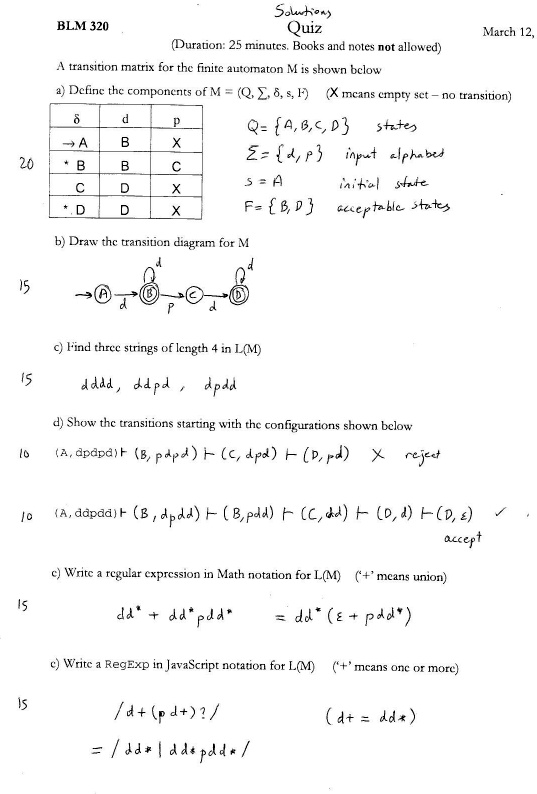 Solutions
BLM 320
Quiz
March 12,
(Duration: 25 minutes. Books and notes not allowed)
A transition matrix for the finite automaton M is shown below
a) Define the components of M = (Q, Σ, δ, s, F) (X means empty set – no transition)
δ d p
→ A B X
* B B C
C D X
* D D X
20
Q = {A, B, C, D} states
Σ = {d, p} input alphabet
s = A initial state
F = {B, D} acceptable states
b) Draw the transition diagram for M
15
d d
→ A → B → C → D
d p d
c) Find three strings of length 4 in L(M)
15
dddd, ddpd, dpdd
d) Show the transitions starting with the configurations shown below
10 (A, dpdpd) ⊢ (B, pdpd) ⊢ (C, dpd) ⊢ (D, pd) X reject
10 (A, ddpdd) ⊢ (B, dpdd) ⊢ (B, pdd) ⊢ (C, dd) ⊢ (D, d) ⊢ (D, ε) ✓
accept
e) Write a regular expression in Math notation for L(M) ('+' means union)
15
dd* + dd*pdd* = dd*(ε + pdd*)
e) Write a RegExp in JavaScript notation for L(M) ('+' means one or more)
15
/d+(pd+)?/ (d+ = dd*)
= /dd*|dd*pdd*/